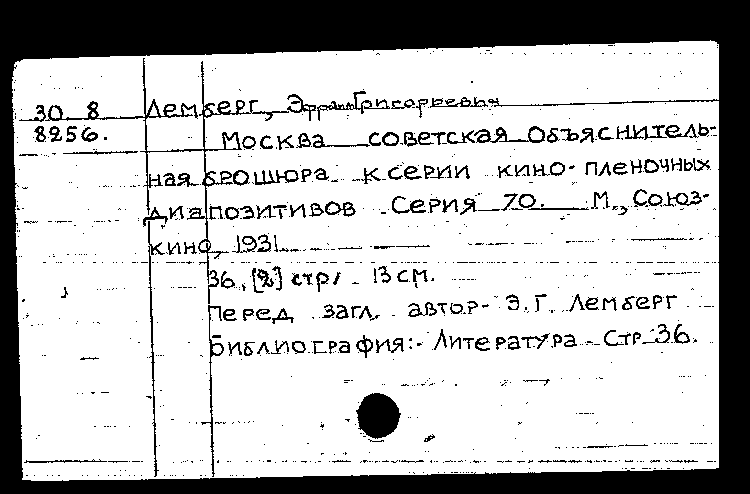 30 8 Лемберг, Эфраим Григорьевич
8256. Москва советская Объяснитель-
ная брошюра к серии кино-пленочных
диапозитивов. Серия 70. М., Союз-
кино, 1931.
36, [2] стр. 13 см.
Перед загл. автор- Э.Г. Лемберг
Библиография:- Литература - Стр 36.